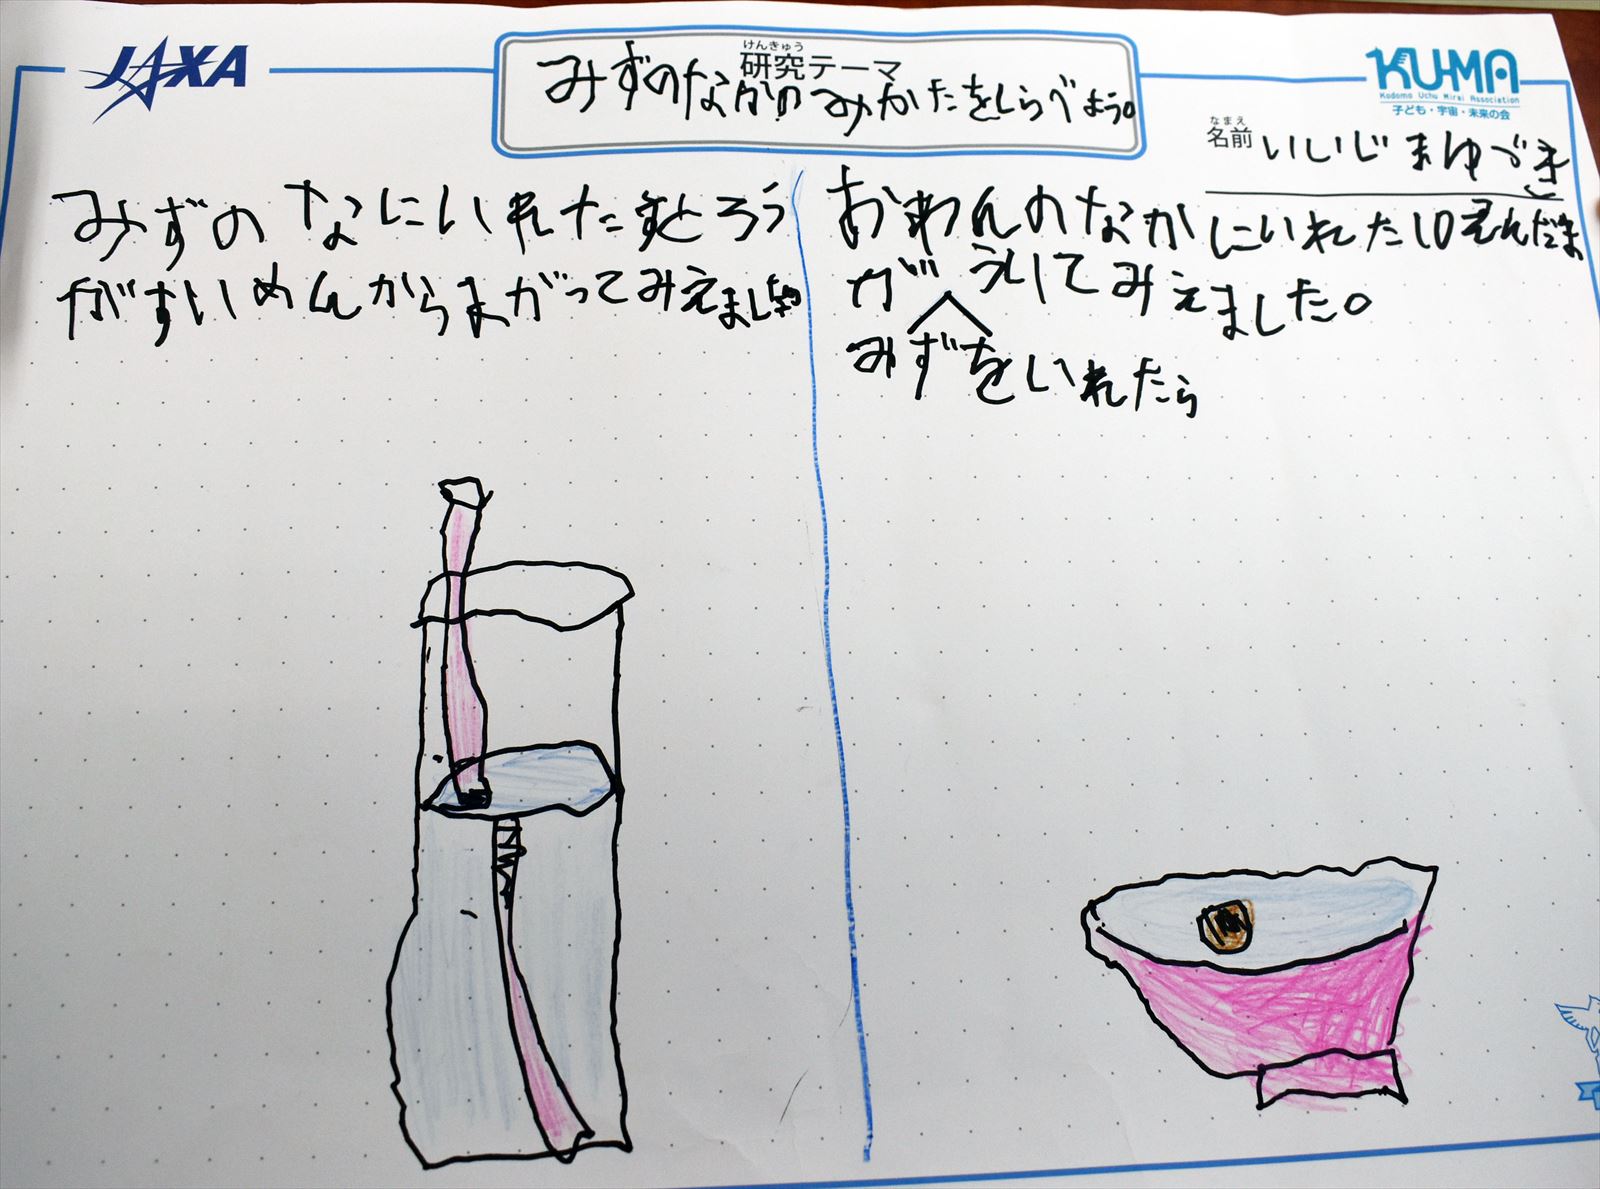 JAXA
けんきゅう
研究テーマ
みずのなかのみかたをしらべよう。
KU-MA
Kodomo Uchu Mirai Association
子ども・宇宙・未来の会
なまえ
名前
いいじまゆづき
みずのなにいれたすとろう
がすいめんからまがってみえました
おわんのなかにいれた10えんだま
がういてみえました。
みずをいれたら